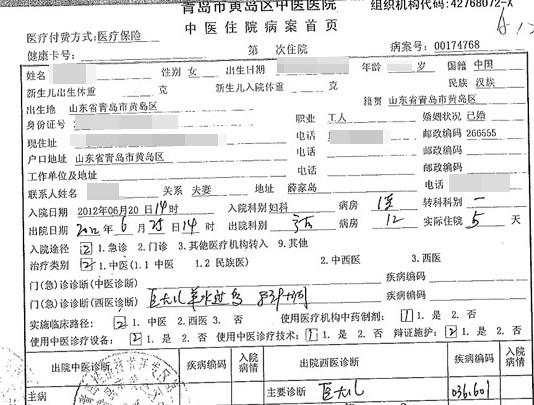 青岛市黄岛区中医医院 组织机构代码:42768072-X
中医住院病案首页
医疗付款方式:医疗保险
健康卡号: 第 次住院 病案号:00174768
姓名 性别 女 出生日期 年龄 岁 国籍 中国
新生儿出生体重 克 新生儿入院体重 克 民族 汉族
出生地 山东省青岛市黄岛区 籍贯 山东省青岛市黄岛区
身份证号 职业 工人 婚姻状况 已婚
现住址 电话 邮政编码 266555
户口地址 山东省青岛市黄岛区 电话 邮政编码
工作单位及地址 电话 邮政编码
联系人姓名 关系 夫妻 地址 薛家岛 电话
入院日期 2012年06月20日14时 入院科别 妇科 病房 转科科别
出院日期 2012年6月25日14时 出院科别 病房 12 实际住院 5 天
入院途径 2 1.急诊 2.门诊 3.其他医疗机构转入 9.其他
治疗类别 2 1.中医(1.1 中医 1.2 民族医) 2.中西医 3.西医
门(急)诊诊断(中医诊断) 疾病编码
门(急)诊诊断(西医诊断) 巨大儿 羊水过多 疾病编码
实施临床路径: 2 1.中医 2.西医 3.否 使用医疗机构中药制剂: 1 1.是 2.否
使用中医诊疗设备: 2 1.是 2.否 使用中医诊疗技术: 1 1.是 2.否 辩证施护: 2 1.是 2.否
出院中医诊断 疾病编码 入院病情 出院西医诊断 疾病编码 入院病情
主病 主要诊断 巨大儿 036.601